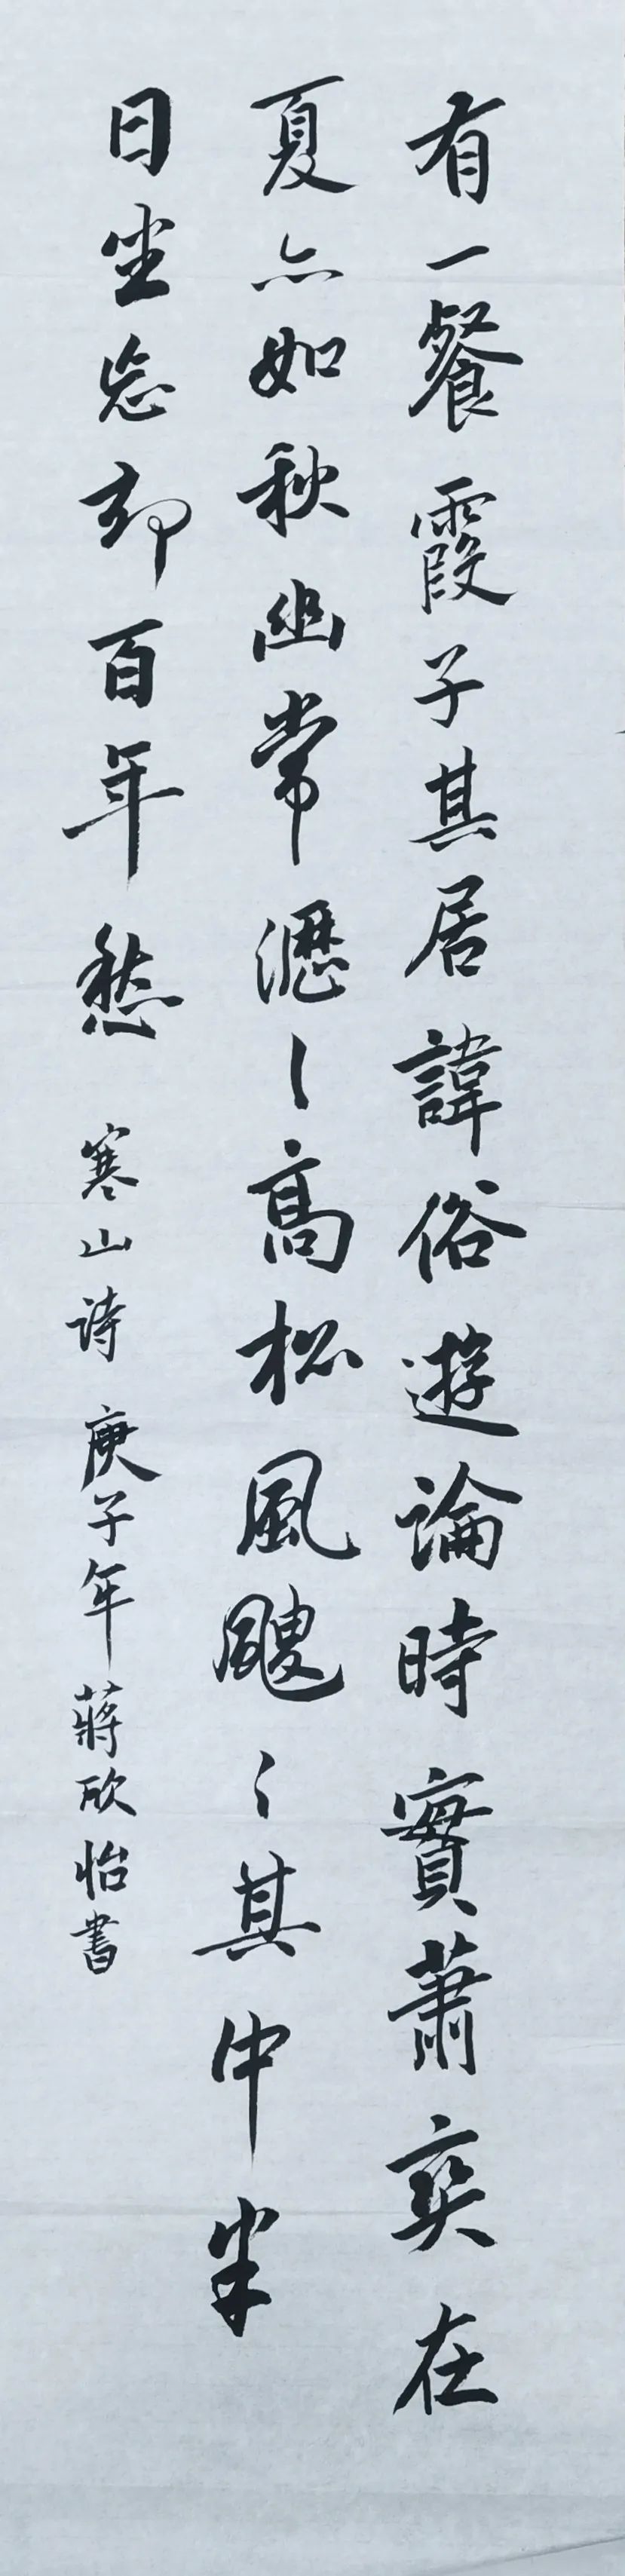 有一餐霞子其居諱俗遊論時實蕭爽在
夏亦如秋幽㵎常瀝〻高松風颼〻其中半
日坐忘却百年愁 寒山詩 庚子年 蔣欣怡書